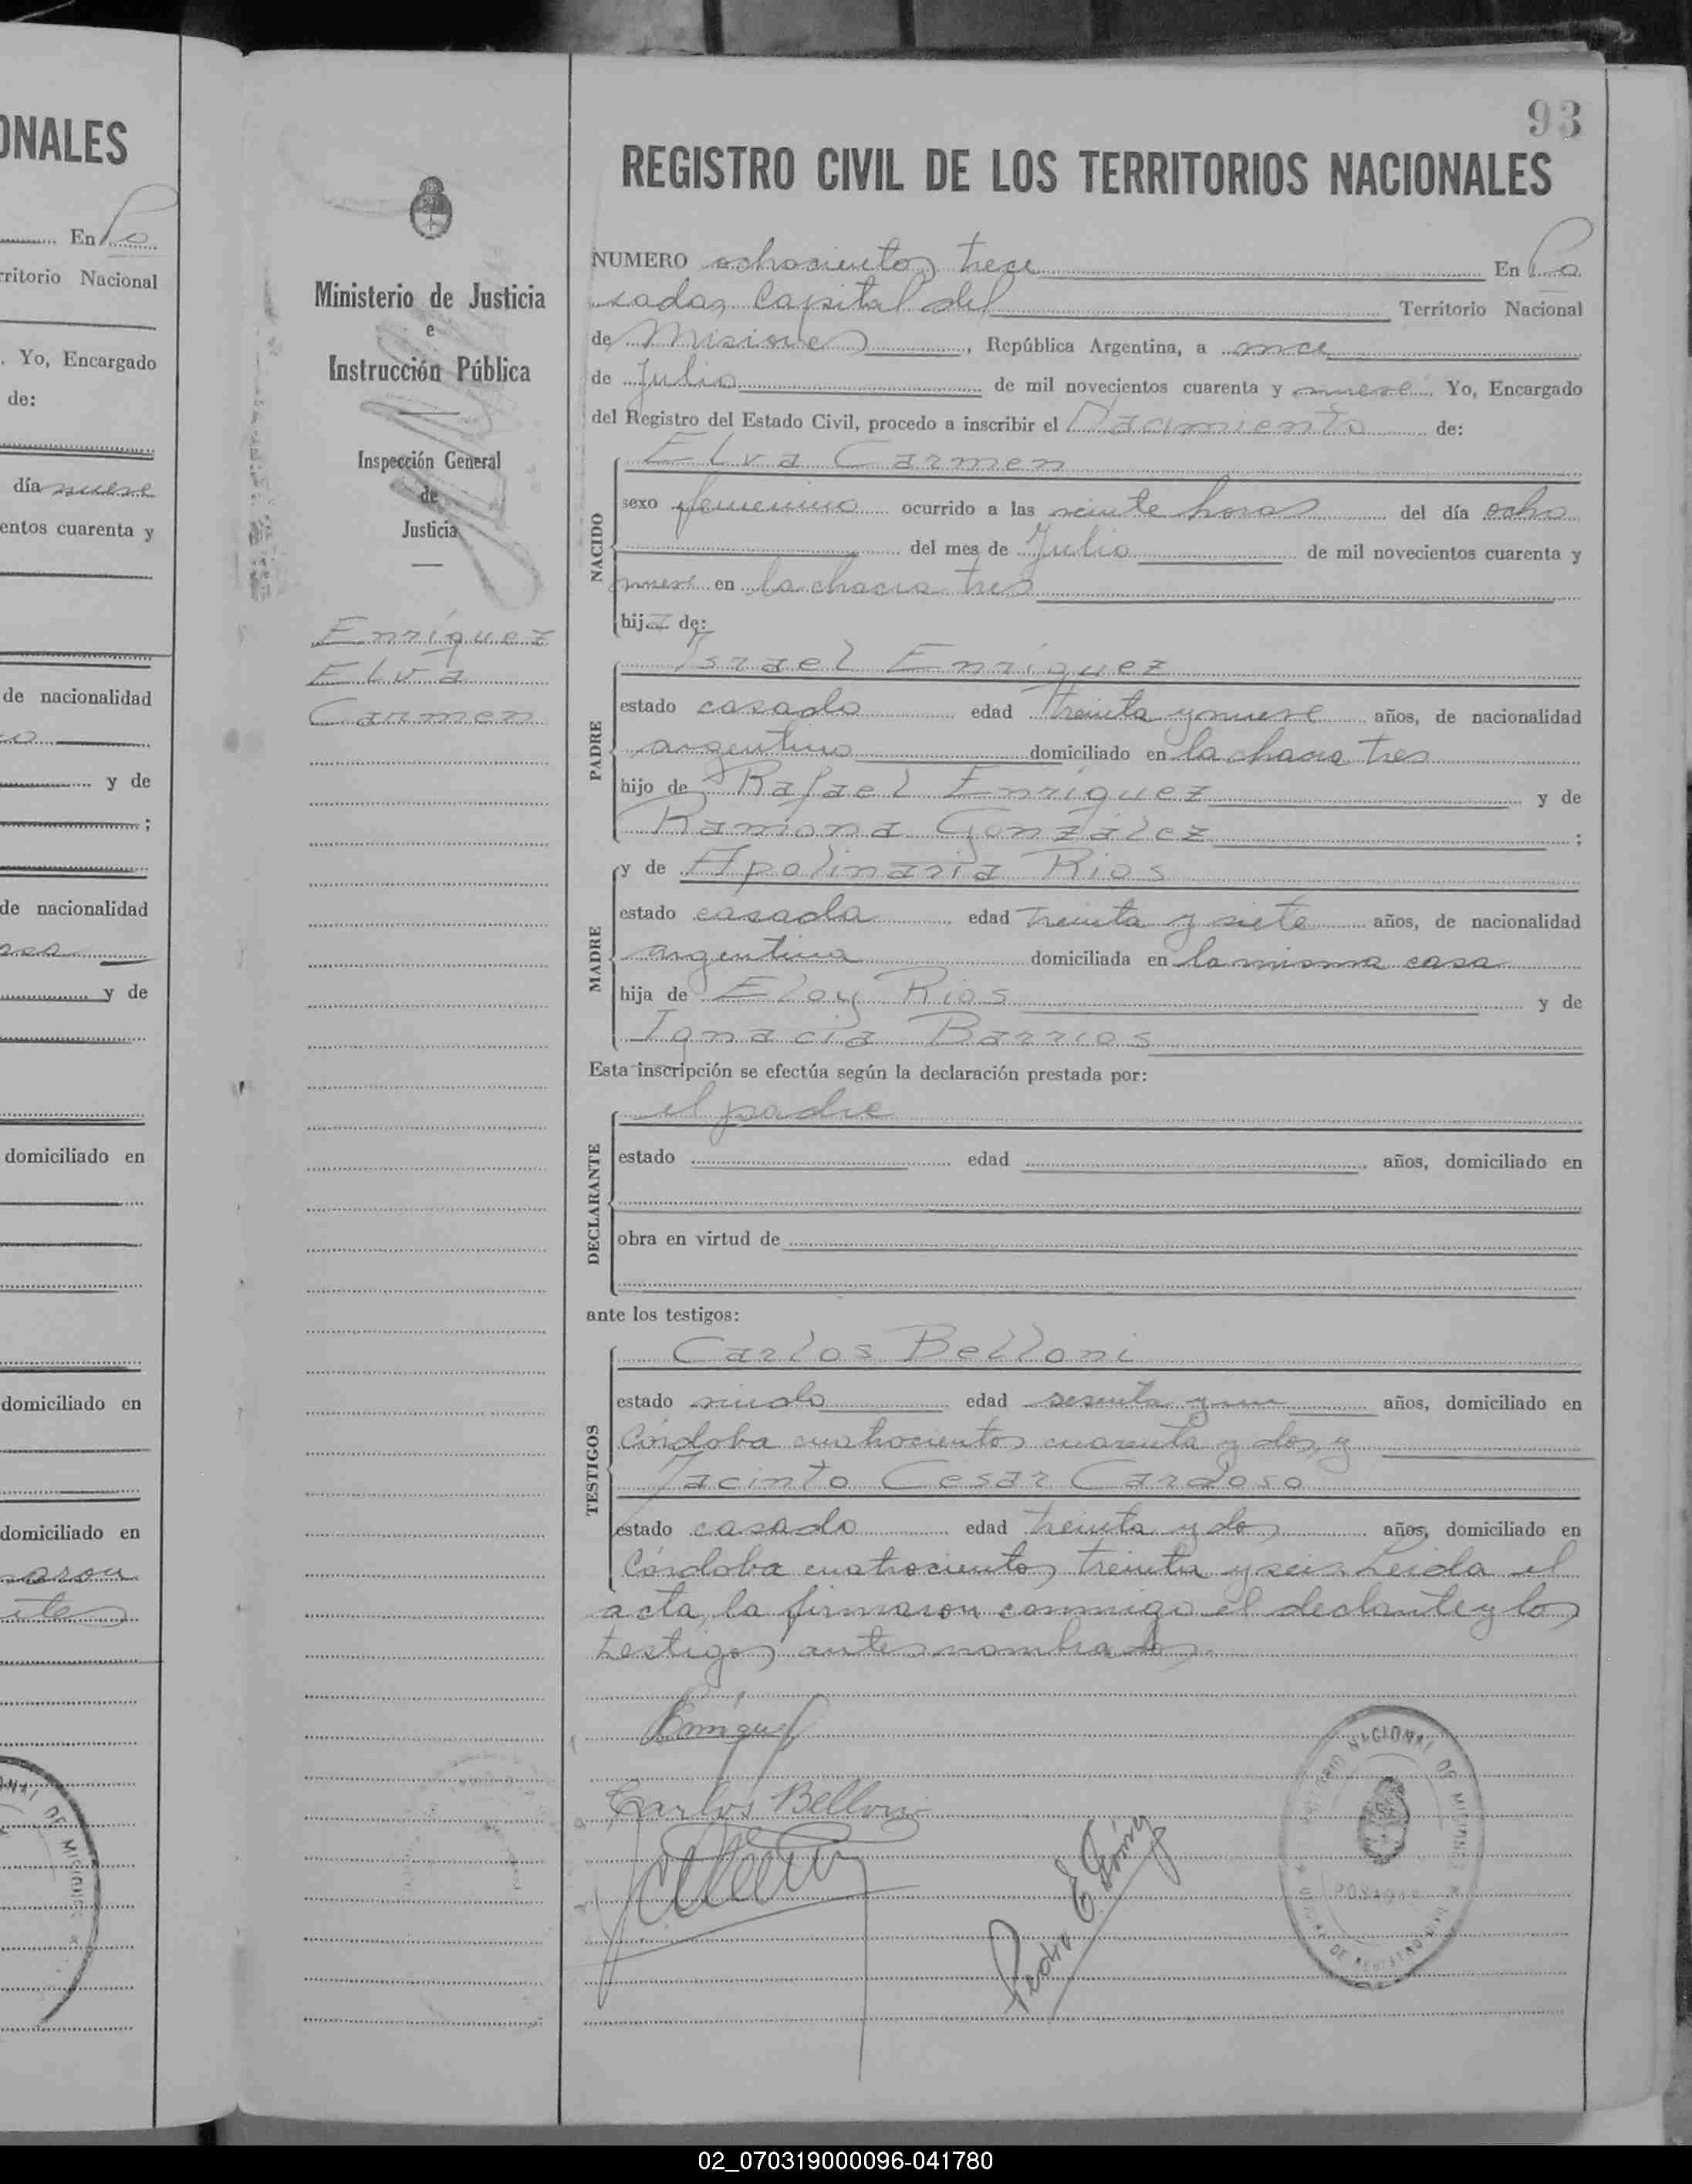 ONALES
En Po
rritorio Nacional
. Yo, Encargado
de:
día nueve
entos cuarenta y
de nacionalidad
y de
;
de nacionalidad
asa
y de
domiciliado en
domiciliado en
domiciliado en
maron
ites
93
REGISTRO CIVIL DE LOS TERRITORIOS NACIONALES
Ministerio de Justicia
e
Instrucción Pública
Inspección General
de
Justicia
Enríquez
Elva
Carmen
NUMERO ochocientos trece En Po
sadas Capital del Territorio Nacional
de Misiones, República Argentina, a once
de Julio de mil novecientos cuarenta y nueve. Yo, Encargado
del Registro del Estado Civil, procedo a inscribir el Nacimiento de:
NACIDO
Elva Carmen
sexo femenino ocurrido a las veinte horas del día ocho
del mes de Julio de mil novecientos cuarenta y
nueve en la chacra tres
hija de:
PADRE
Israel Enríquez
estado casado edad treinta y nueve años, de nacionalidad
argentino domiciliado en la chacra tres
hijo de Rafael Enríquez y de
Ramona González ;
MADRE
y de Apolinaria Rios
estado casada edad treinta y siete años, de nacionalidad
argentina domiciliada en la misma casa
hija de Eloy Rios y de
Ignacia Barrios
Esta inscripción se efectúa según la declaración prestada por:
DECLARANTE
el padre
estado edad años, domiciliado en
obra en virtud de
ante los testigos:
TESTIGOS
Carlos Belloni
estado viudo edad sesenta y un años, domiciliado en
Córdoba cuatrocientos cuarenta y dos, y
Jacinto Cesar Cardoso
estado casado edad treinta y dos años, domiciliado en
Córdoba cuatrocientos treinta y seis. Leida el
acta, la firmaron conmigo el declante y los
testigos antes nombrados.
Enríquez
Carlos Belloni
Pedro E. Gómez
NACIONAL DE MISIONES
POSADAS
OFICINA DE REGISTRO CIVIL
02_070319000096-041780